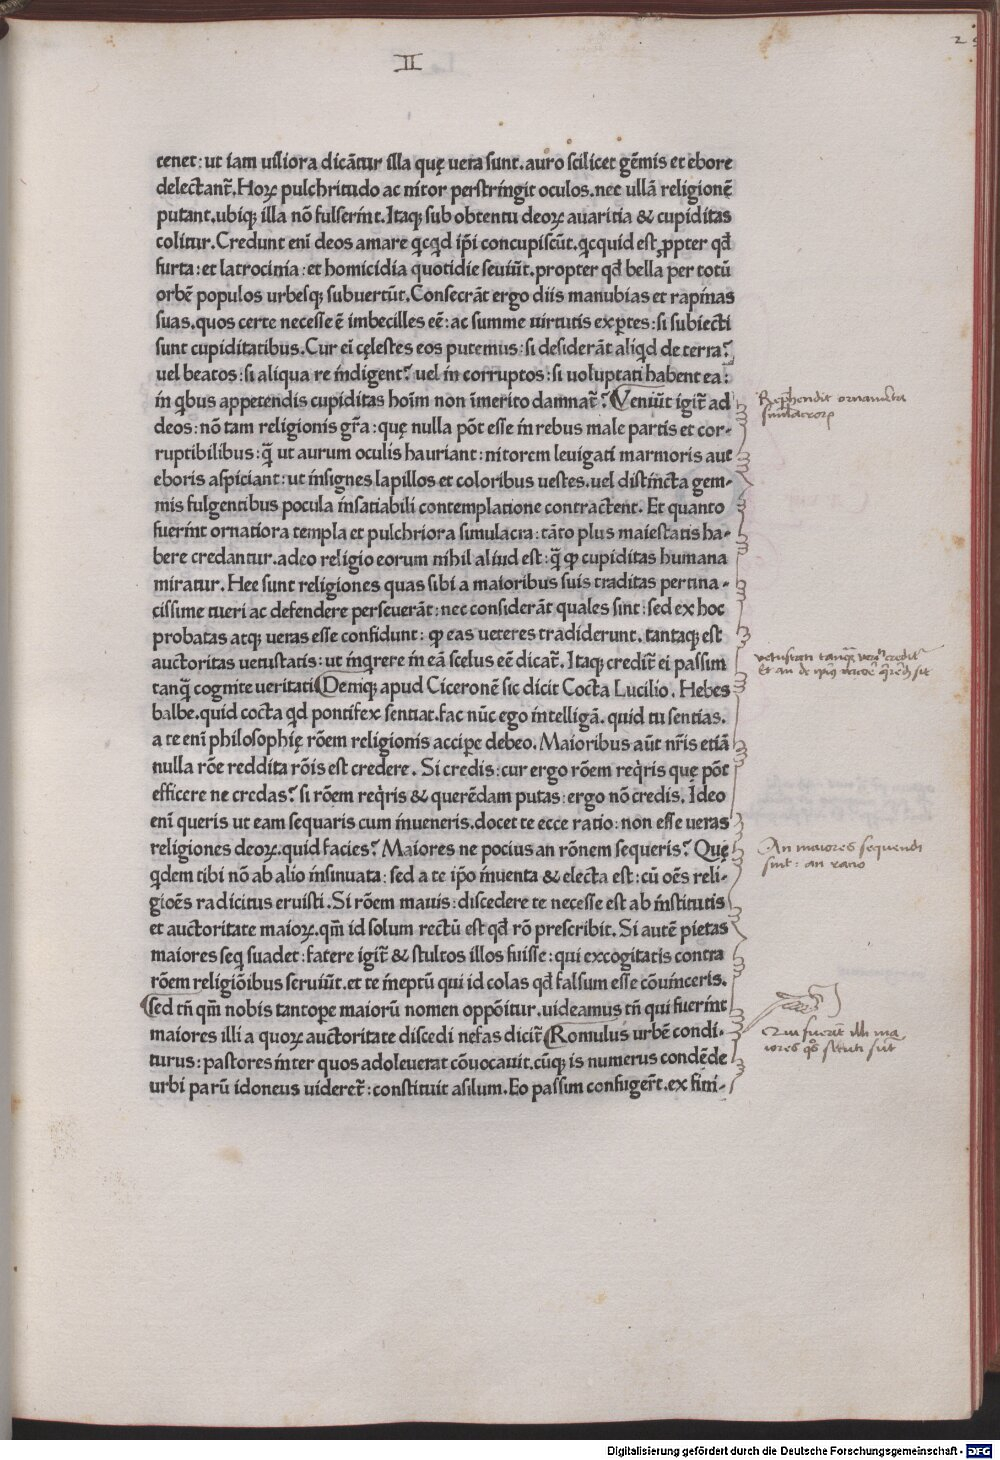 II
tenet: ut iam uiliora dicãtur illa quę uera sunt. auro scilicet gẽmis et ebore
delectant̃. Hoꝝ pulchritudo ac nitor perstringit oculos. nec ullã religionẽ
putant. ubiqȝ illa nõ fulserint. Itaqȝ sub obtentu deoꝝ auaritia & cupiditas
colitur. Credunt eni deos amare qͥcqͥd ip̃i concupiscũt. qͥcquid est ꝓpter qđ
furta: et latrocinia: et homicidia quotidie seuiũt. propter qđ bella per totũ
orbẽ populos urbesqȝ subuertũt. Consecrãt ergo diis manubias et rapinas
suas. quos certe necesse ẽ imbecilles eẽ: ac summe uirtutis exꝑtes: si subiecti
sunt cupiditatibus. Cur ei cęlestes eos putemus: si desiderãt aliqͥd de terra?
uel beatos: si aliqua re indigent? uel in corruptos: si uoluptati habent ea:
in qͥbus appetendis cupiditas hoĩm non ĩmerito damnat̃? Veniũt igit̃ ad
deos: nõ tam religionis gr̃a: quę nulla põt esse in rebus male partis et cor-
ruptibilibus: q̃ ut aurum oculis hauriant: nitorem leuigati marmoris aut
eboris aspiciant: ut insignes lapillos et coloribus uestes. uel distincta gem-
mis fulgentibus pocula insatiabili contemplatione contractent. Et quanto
fuerint ornatiora templa et pulchriora simulacra: tãto plus maiestatis ha-
bere credantur. adeo religio eorum nihil aliud est: q̃ ꝙ cupiditas humana
miratur. Hee sunt religiones quas sibi a maioribus suis traditas pertina-
cissime tueri ac defendere perseuerãt: nec considerãt quales sint: sed ex hoc
probatas atqȝ ueras esse confidunt: ꝙ eas ueteres tradiderunt. tantaqȝ est
auctoritas uetustatis: ut inqͥrere in eã scelus eẽ dicat̃. Itaqȝ credit̃ ei passim
tanq̃ cognite ueritati Deniqȝ apud Ciceronẽ sic dicit Cocta Lucilio. Hebes
balbe. quid cocta qͥd pontifex sentiat. fac nũc ego intelligã. quid tu sentias.
a te eni philosophię rõem religionis accipe debeo. Maioribus aũt nr̃is etiã
nulla rõe reddita rõis est credere. Si credis: cur ergo rõem reqͥris que põt
efficere ne credas? si rõem reqͥris & querẽdam putas: ergo nõ credis. Ideo
eni queris ut eam sequaris cum inueneris. docet te ecce ratio: non esse ueras
religiones deoꝝ. quid facies? Maiores ne pocius an rõnem sequeris? Quę
qͥdem tibi nõ ab alio insinuata: sed a te ip̃o inuenta & electa est: cũ oẽs reli-
gioẽs radicitus eruisti. Si rõem mauis: discedere te necesse est ab institutis
et auctoritate maioꝝ. qm̃ id solum rectũ est qđ rõ prescribit. Si autẽ pietas
maiores seqͥ suadet: fatere igit̃ & stultos illos fuisse: qui excogitatis contra
rõem religiõibus seruiũt. et te ineptũ qui id colas qđ falsum esse cõuinceris.
sed tñ qm̃ nobis tantope maiorũ nomen oppõitur. uideamus tñ qui fuerint
maiores illi a quoꝝ auctoritate discedi nefas dicit̃ Romulus urbẽ condi-
turus: pastores inter quos adoleuerat cõuocauit. cũqȝ is numerus condẽde
urbi parũ idoneus uideret̃: constituit asilum. Eo passim confugert̃. ex fini-
Rep̃hendit ornamẽta
simulacroꝝ
vetustati tanq̃ veri credit̃
Et an de ipius
An maiores sequendi
sint: an ratio
Qui fuerĩt illi ma
iores qͦs secuti sũt
Digitalisierung gefördert durch die Deutsche Forschungsgemeinschaft - DFG